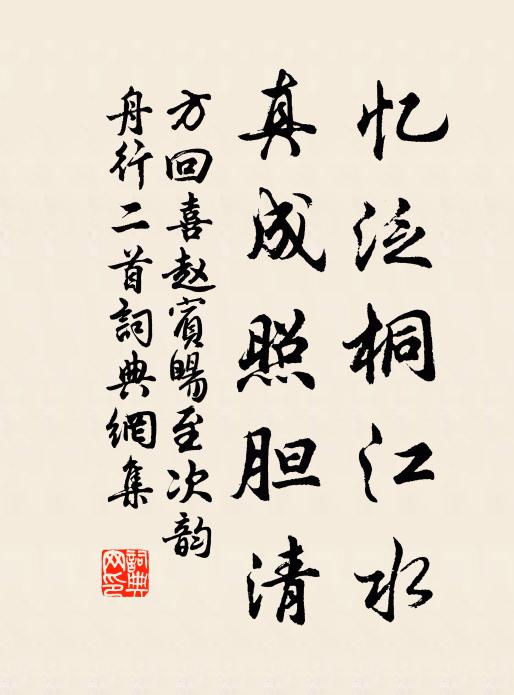 忆泛桐江水
真成照胆清
方回喜赵宾旸至次韵
舟行二首詞典網集
詞典网印